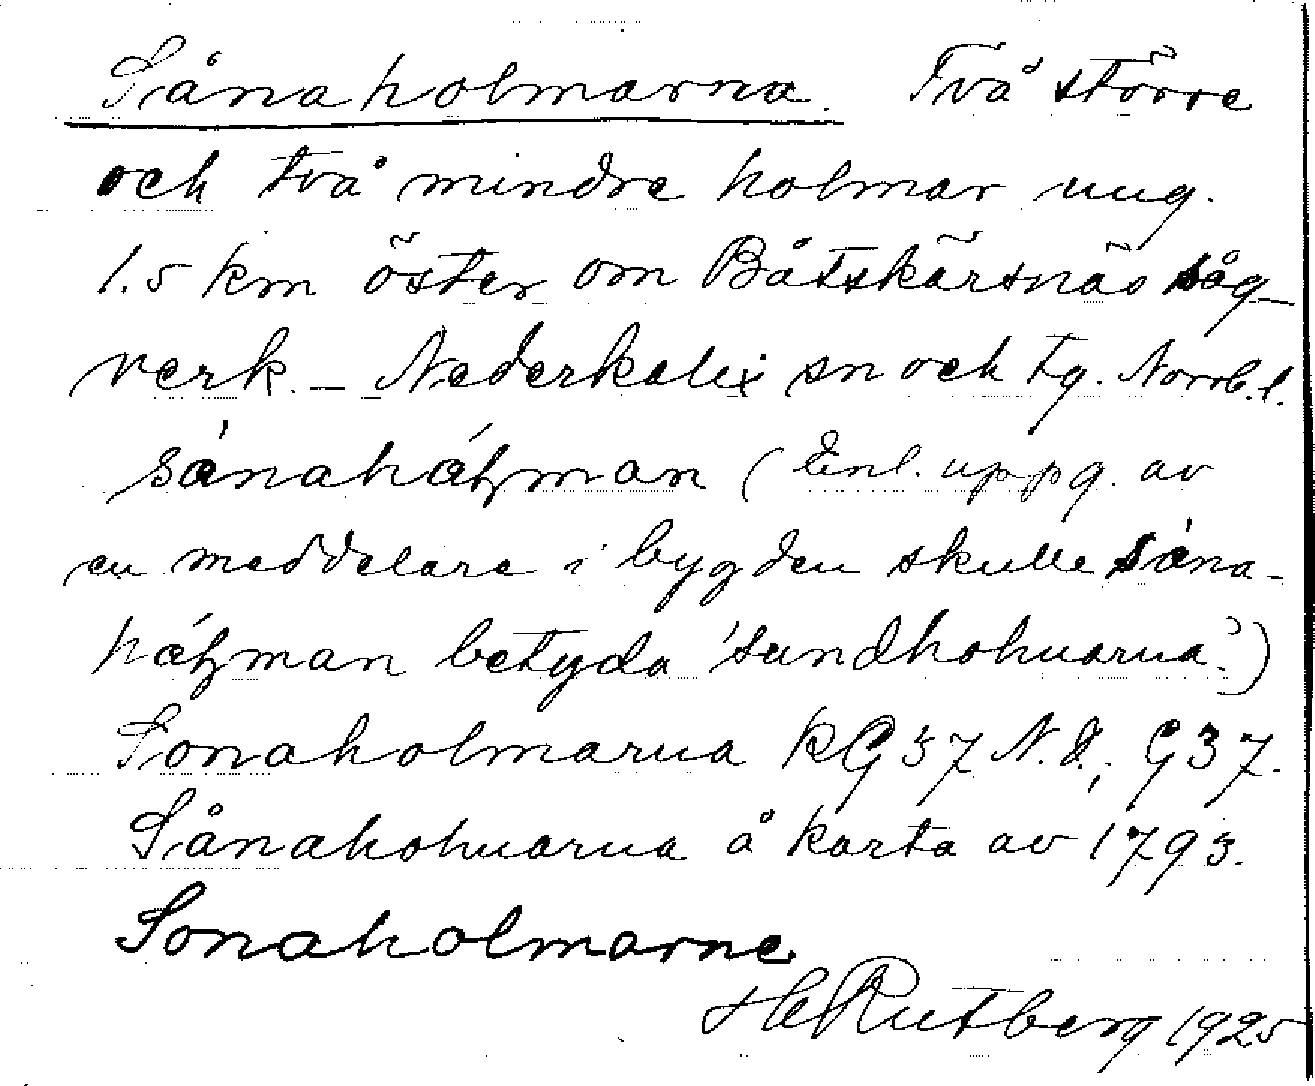 Sånaholmarna. Två större
och två mindre holmar ung.
1.5 km öster om Båtskärsnäs såg-
verk. – Nederkalix sn och tg. Norrb. l.
(Enl. uppg. av
en meddelare i bygden skulle
betyda 'sundholmarna'.)
Sonaholmarna KG 37 N.Ö.; G 37.
Sånaholmarna å karta av 1793.
Sonaholmarne
H Rutberg 1925